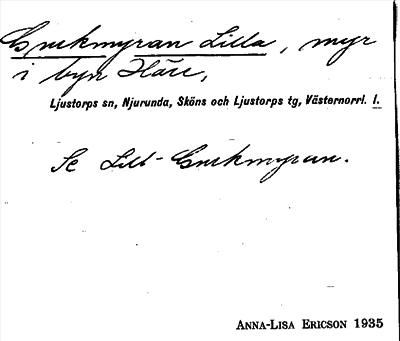 Gnckmyran Lilla, myr
i byn Häre,
Ljustorps sn, Njurunda, Sköns och Ljustorps tg, Västernorrl. l.
Se Lill-Gnckmyran.
ANNA-LISA ERICSON 1935